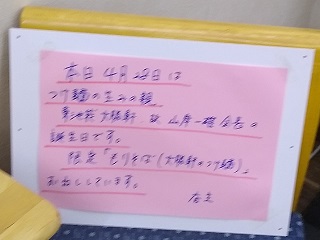 本日4月28日は
つけ麺の生みの親
東池袋大勝軒 故 山岸一雄会長の
誕生日です。
限定「もりそば(大勝軒のつけ麺)」
お出ししています。
店主